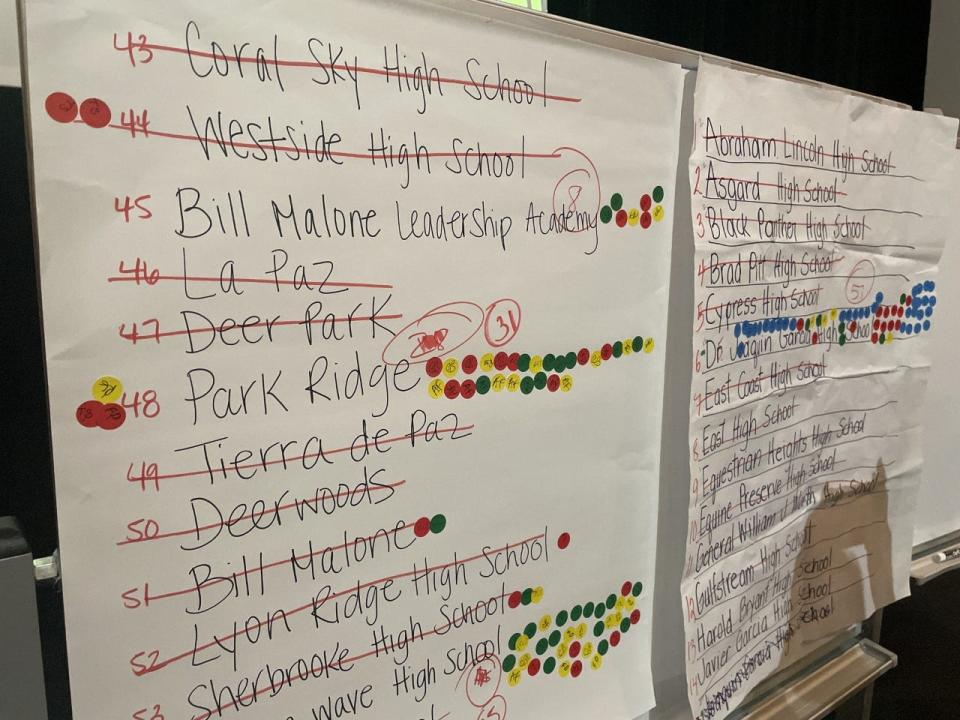 43 Coral Sky High School
44 Westside High School
8
45 Bill Malone Leadership Academy
46 La Paz
47 Deer Park
31
48 Park Ridge
49 Tierra de Paz
50 Deerwoods
51 Bill Malone
52 Lyon Ridge High School
53 Sherbrooke High School
wave High School
1 Abraham Lincoln High School
2 Asgard High School
3 Black Panther High School
4 Brad Pitt High School
57
5 Cypress High School
6 Dr. Joaquin Garcia High School
7 East Coast High School
8 East High School
9 Equestrian Heights High School
10 Equine Preserve High School
General William J High School
12 Gulfstream High School
13 Harold Bryant High School
14 Javier Garcia High School